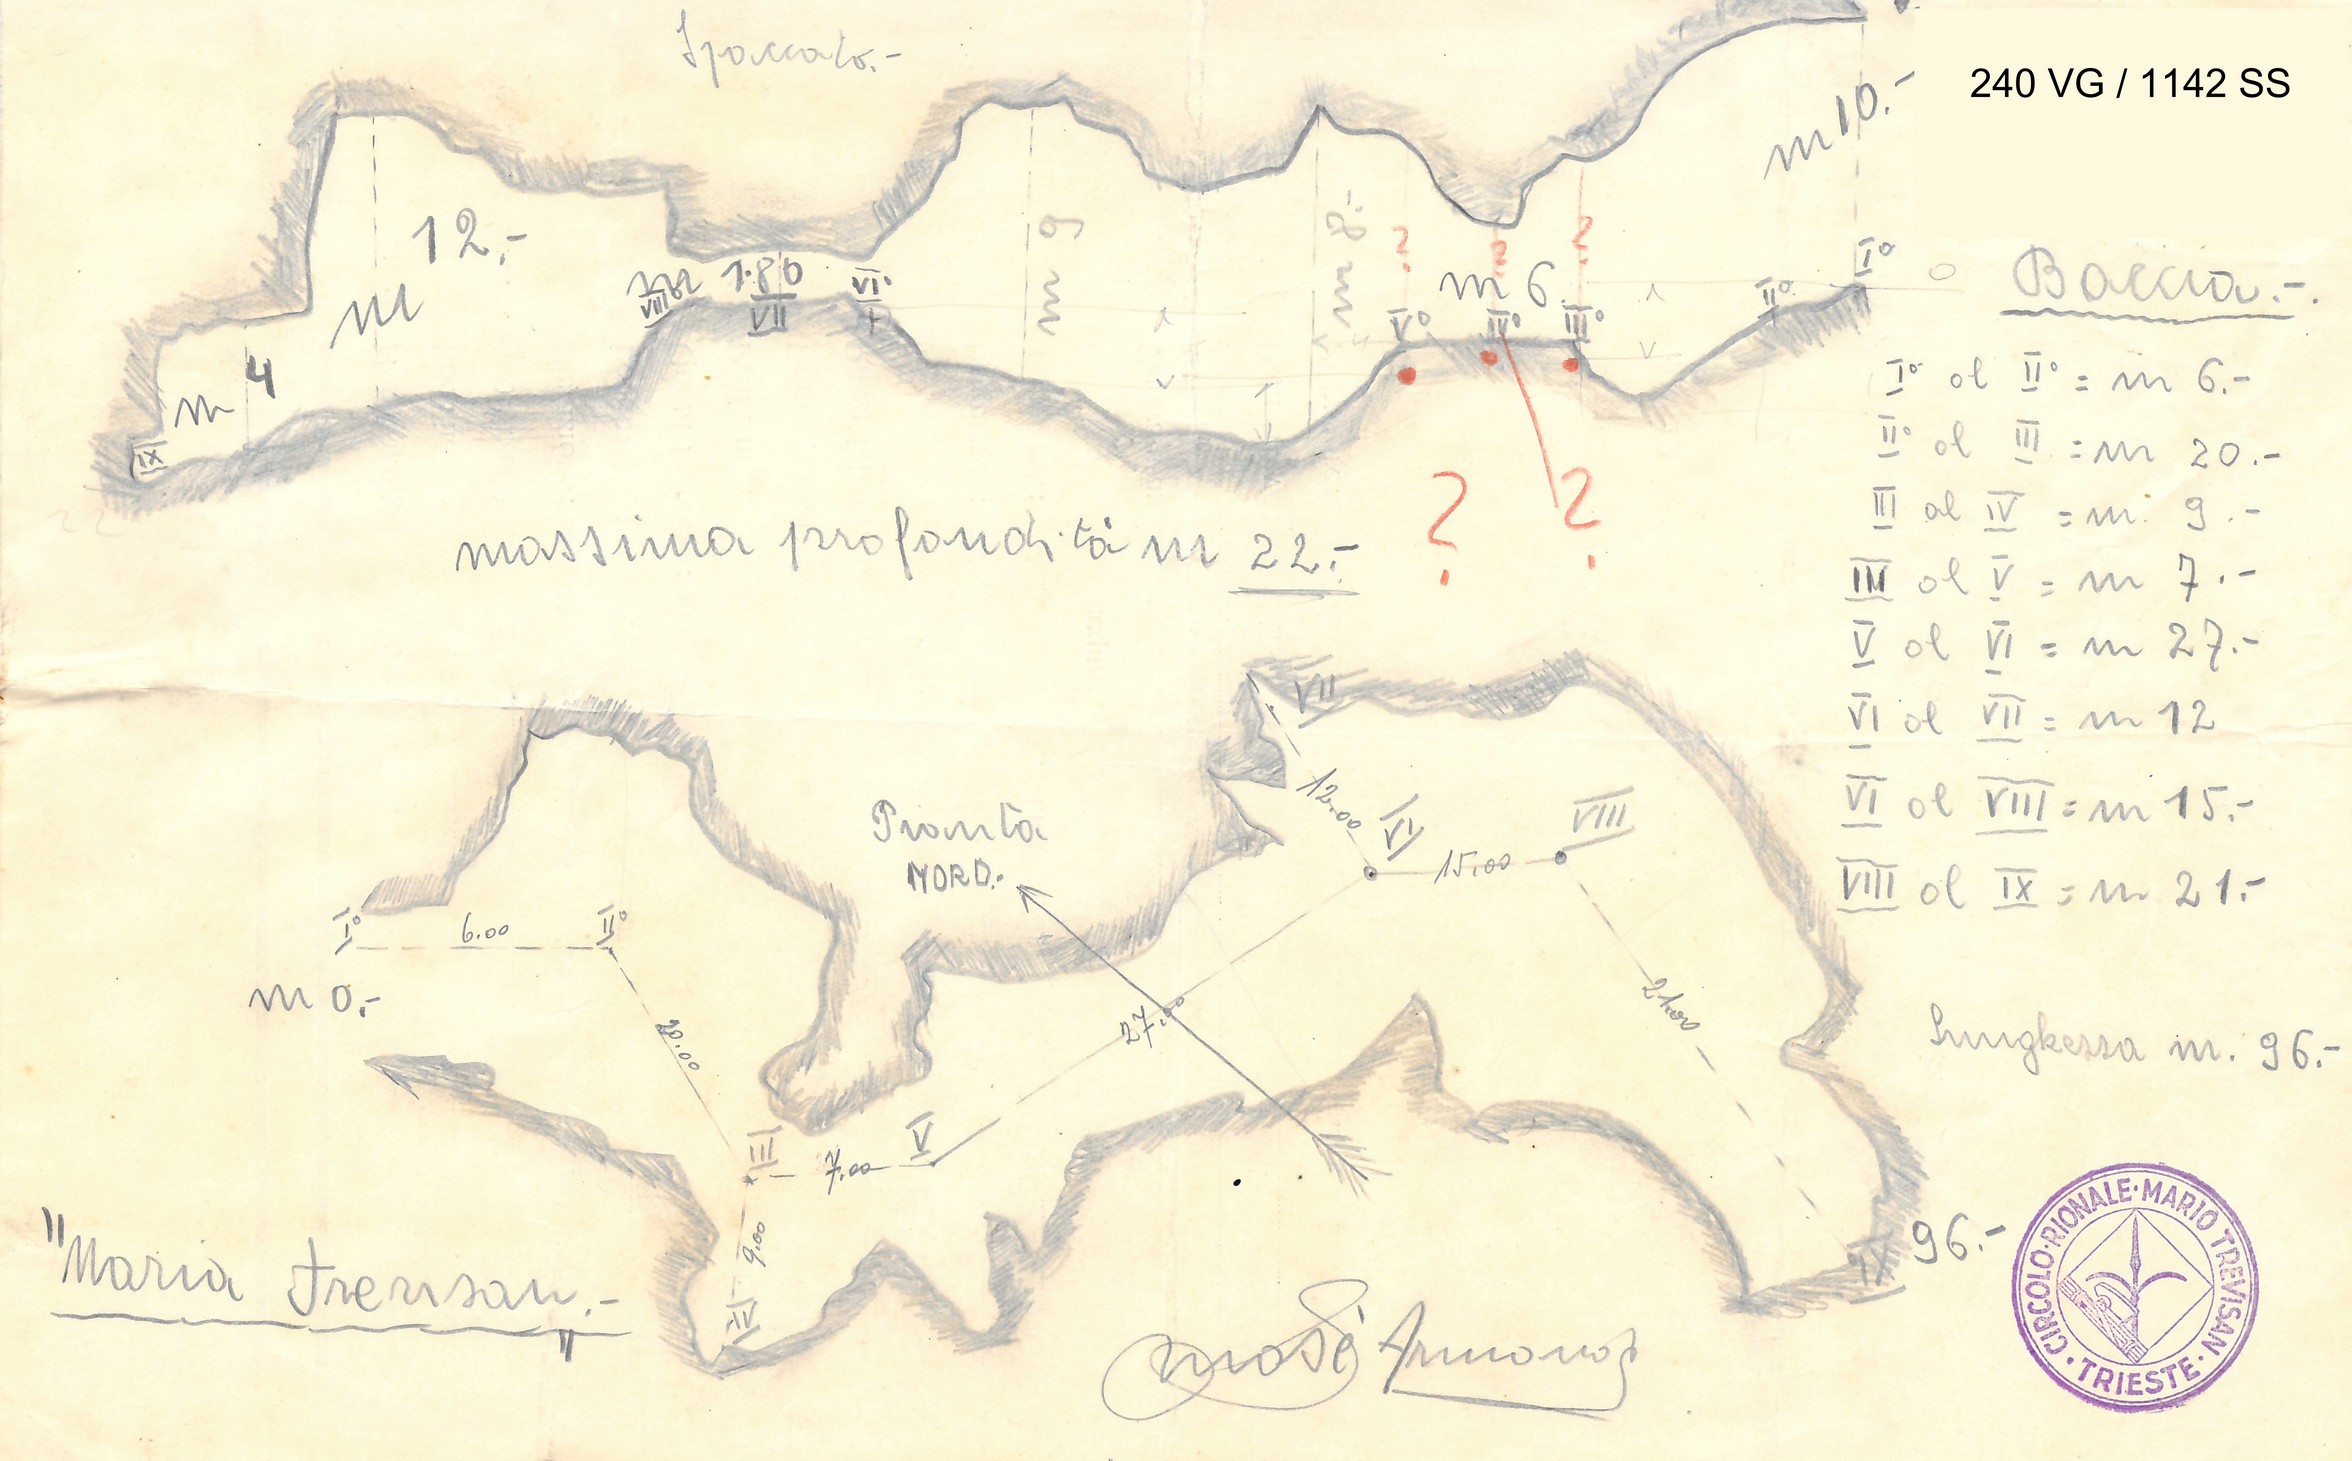 Spaccato.-
240 VG / 1142 SS
m 10.-
12.-
m
m 1.80
VIII
VII
VI°
m 9
m 8.-
?
?
?
m 6.
V°
IV°
III°
II°
I°
0
m 4
IX
22
massima profondità m 22.-
?
?
Baccia.-.
I° al II° = m 6.-
II° al III = m 20.-
III al IV = m. 9.-
III al V = m 7.-
V al VI = m 27.-
VI al VII = m 12
VI al VIII = m 15.-
VIII al IX = m 21.-
Lunghessa m. 96.-
VII
12.00
VI
15.00
VIII
Pianta
NORD.-
I°
6.00
II°
m 0.-
20.00
27.
21.00
III
7.00
V
9.00
IV
IX
96.-
"Maria Trevisan.-"
Mosè
CIRCOLO·RIONALE·MARIO TREVISAN
·TRIESTE·